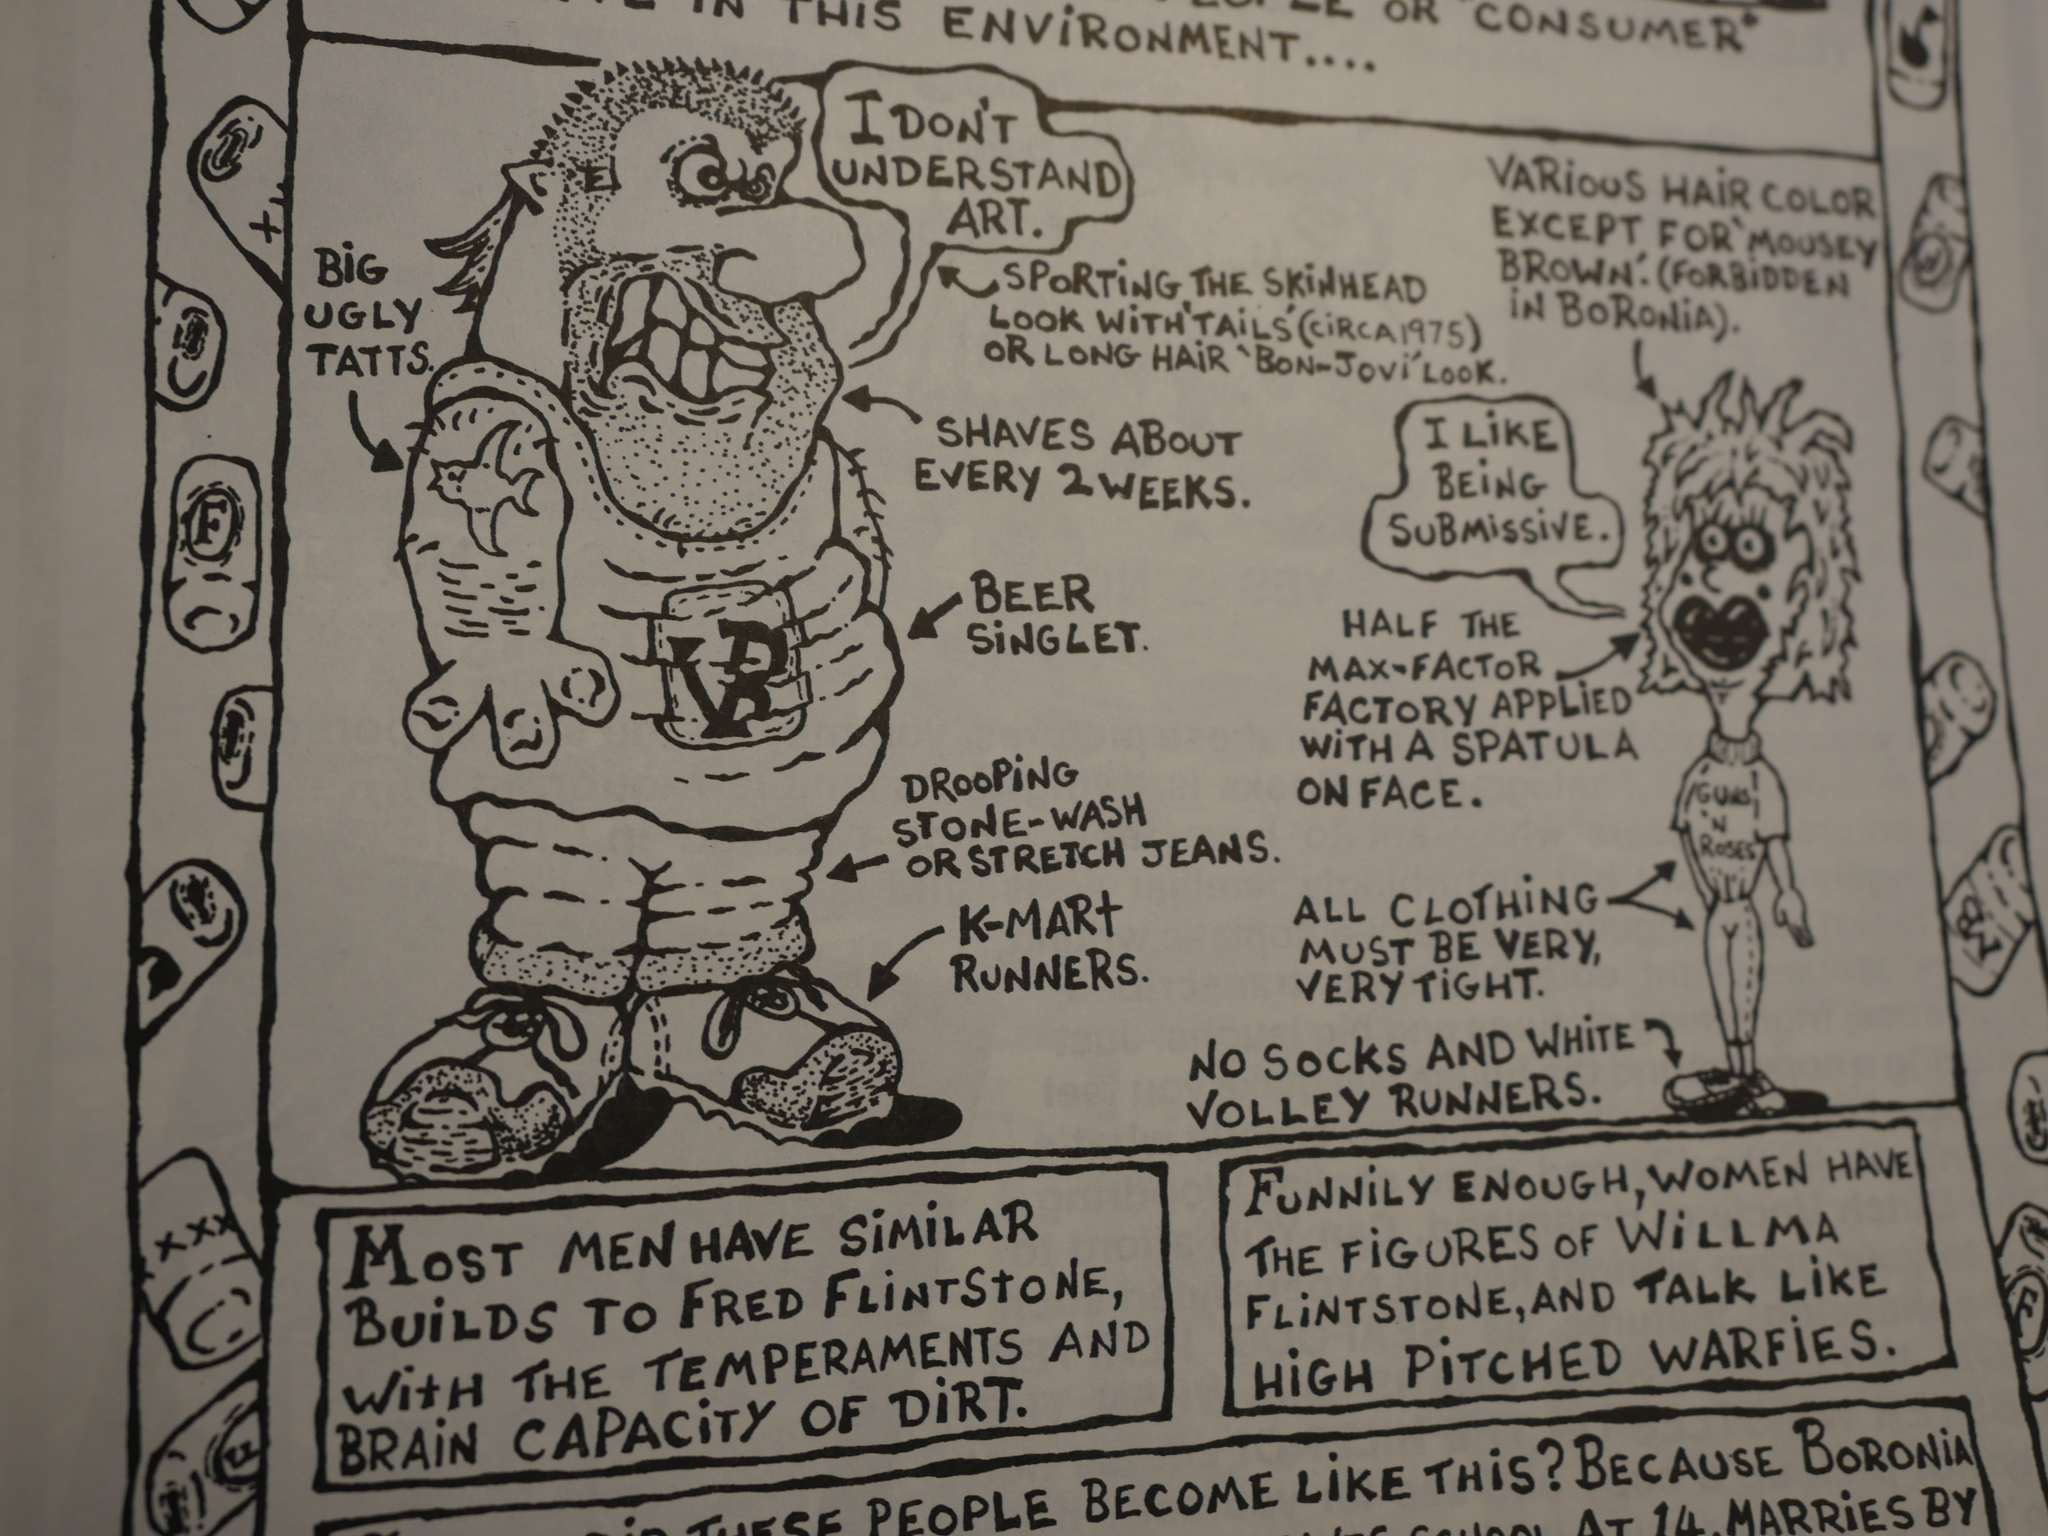 IN THIS ENVIRONMENT....
OR "CONSUMER"
I DON'T
UNDERSTAND
ART.
BIG
UGLY
TATTS.
SPORTING THE SKINHEAD
LOOK WITH 'TAILS' (CIRCA 1975)
OR LONG HAIR 'BON-JOVI' LOOK.
SHAVES ABOUT
EVERY 2 WEEKS.
BEER
SINGLET.
VB
DROOPING
STONE-WASH
OR STRETCH JEANS.
K-MART
RUNNERS.
VARIOUS HAIR COLOR
EXCEPT FOR 'MOUSEY
BROWN'. (FORBIDDEN
IN BORONIA).
I LIKE
BEING
SUBMISSIVE.
HALF THE
MAX-FACTOR
FACTORY APPLIED
WITH A SPATULA
ON FACE.
GUNS
'N
ROSES
ALL CLOTHING
MUST BE VERY,
VERY TIGHT.
NO SOCKS AND WHITE
VOLLEY RUNNERS.
MOST MEN HAVE SIMILAR
BUILDS TO FRED FLINTSTONE,
WITH THE TEMPERAMENTS AND
BRAIN CAPACITY OF DIRT.
FUNNILY ENOUGH, WOMEN HAVE
THE FIGURES OF WILLMA
FLINTSTONE, AND TALK LIKE
HIGH PITCHED WARFIES.
THESE PEOPLE BECOME LIKE THIS? BECAUSE BORONIA
SCHOOL AT 14, MARRIES BY